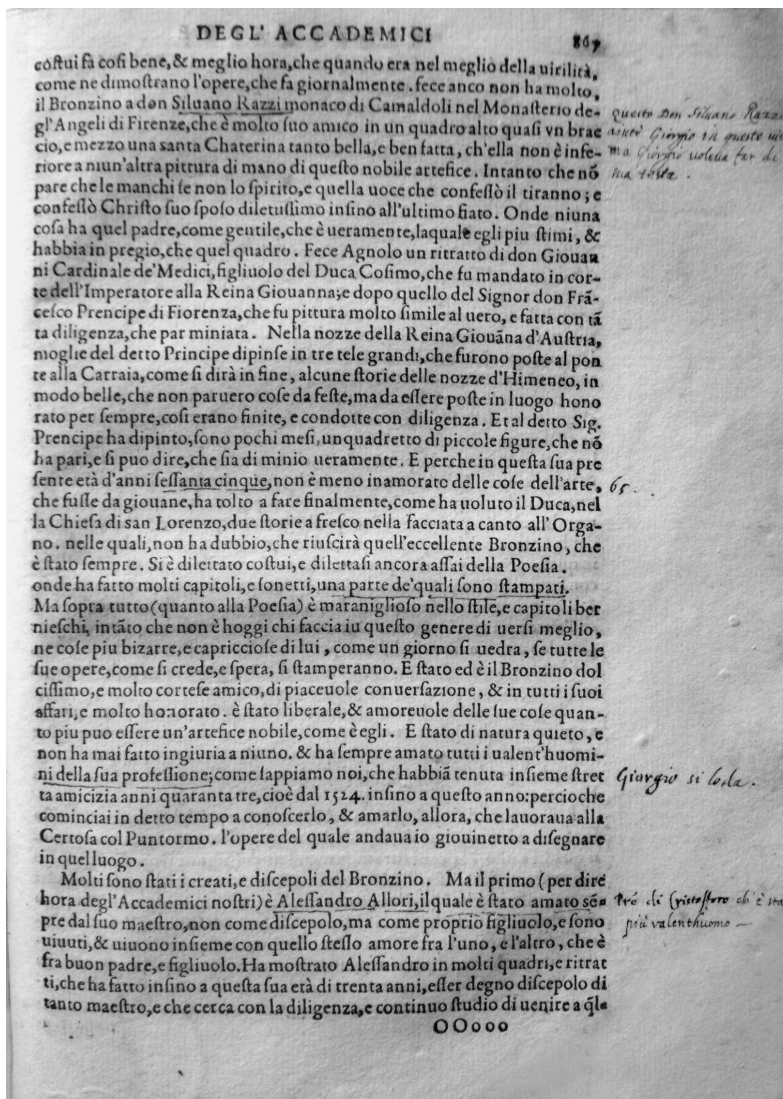 DEGL' ACCADEMICI
867
coſtui fà coſi bene, & meglio hora, che quando era nel meglio della uirilità,
come ne dimoſtrano l'opere, che fa giornalmente. fece anco non ha molto,
il Bronzino a don Siluano Razzi monaco di Camaldoli nel Monaſterio de-
gl'Angeli di Firenze, che è molto ſuo amico in un quadro alto quaſi vn brac
cio, e mezzo una santa Chaterina tanto bella, e ben fatta, ch'ella non è infe-
riore a niun'altra pittura di mano di queſto nobile artefice. Intanto che nõ
pare che le manchi ſe non lo ſpirito, e quella uoce che confeſſò il tiranno; e
confeſſò Chriſto ſuo ſpoſo dilettiſſimo inſino all'ultimo fiato. Onde niuna
coſa ha quel padre, come gentile, che è ueramente, laquale egli piu ſtimi, &
habbia in pregio, che quel quadro. Fece Agnolo un ritratto di don Giouan
ni Cardinale de'Medici, figliuolo del Duca Coſimo, che fu mandato in cor-
te dell'Imperatore alla Reina Giouanna; e dopo quello del Signor don Frã-
ceſco Prencipe di Fiorenza, che fu pittura molto ſimile al uero, e fatta con tã
ta diligenza, che par miniata. Nella nozze della Reina Giouãna d'Auſtria,
moglie del detto Principe dipinſe in tre tele grandi, che furono poſte al pon
te alla Carraia, come ſi dirà in fine, alcune ſtorie delle nozze d'Himeneo, in
modo belle, che non paruero coſe da feſte, ma da eſſere poſte in luogo hono
rato per ſempre, coſi erano finite, e condotte con diligenza. Et al detto Sig.
Prencipe ha dipinto, ſono pochi meſi, un quadretto di piccole figure, che nõ
ha pari, e ſi puo dire, che ſia di minio ueramente. E perche in queſta ſua pre
ſente età d'anni ſeſſanta cinque, non è meno inamorato delle coſe dell'arte,
che fuſſe da giouane, ha tolto a fare finalmente, come ha uoluto il Duca, nel
la Chieſa di san Lorenzo, due ſtorie a freſco nella facciata a canto all'Orga-
no. nelle quali, non ha dubbio, che riuſcirà quell'eccellente Bronzino, che
è ſtato ſempre. Si è dilettato coſtui, e dilettaſi ancora aſſai della Poeſia.
onde ha fatto molti capitoli, e ſonetti, una parte de'quali ſono ſtampati.
Ma ſopra tutto (quanto alla Poeſia) è marauiglioſo nello ſtile, e capitoli ber
nieſchi, intãto che non è hoggi chi faccia iu queſto genere di uerſi meglio,
ne coſe piu bizarre, e capriccioſe di lui, come un giorno ſi uedra, ſe tutte le
ſue opere, come ſi crede, e ſpera, ſi ſtamperanno. E ſtato ed è il Bronzino dol
ciſſimo, e molto corteſe amico, di piaceuole conuerſazione, & in tutti i ſuoi
affari, e molto honorato. è ſtato liberale, & amoreuole delle ſue coſe quan-
to piu puo eſſere un'artefice nobile, come è egli. E ſtato di natura quieto, e
non ha mai fatto ingiuria a niuno. & ha ſempre amato tutti i ualent'huomi-
ni della ſua profeſſione; come ſappiamo noi, che habbiã tenuta inſieme ſtret
ta amicizia anni quaranta tre, cioè dal 1524. inſino a queſto anno: percioche
cominciai in detto tempo a conoſcerlo, & amarlo, allora, che lauoraua alla
Certoſa col Puntormo. l'opere del quale andaua io giouinetto a diſegnare
in quel luogo.
Molti ſono ſtati i creati, e diſcepoli del Bronzino. Ma il primo (per dire
hora degl'Accademici noſtri) è Aleſſandro Allori, il quale è ſtato amato sẽ-
pre dal ſuo maeſtro, non come diſcepolo, ma come proprio figliuolo, e ſono
uiuuti, & uiuono inſieme con quello ſteſſo amore fra l'uno, e l'altro, che è
fra buon padre, e figliuolo. Ha moſtrato Aleſſandro in molti quadri, e ritrat
ti, che ha fatto inſino a queſta ſua età di trenta anni, eſſer degno diſcepolo di
tanto maeſtro, e che cerca con la diligenza, e continuo ſtudio di uenire a q̃l-
OOooo
Questo Don Siluano Razzi
aiutò Giorgio in queste
ma Giorgio voleua far di
sua testa.
65.
Giorgio si loda.
Pré di Cristofforo ch'è sta
più valenthuomo